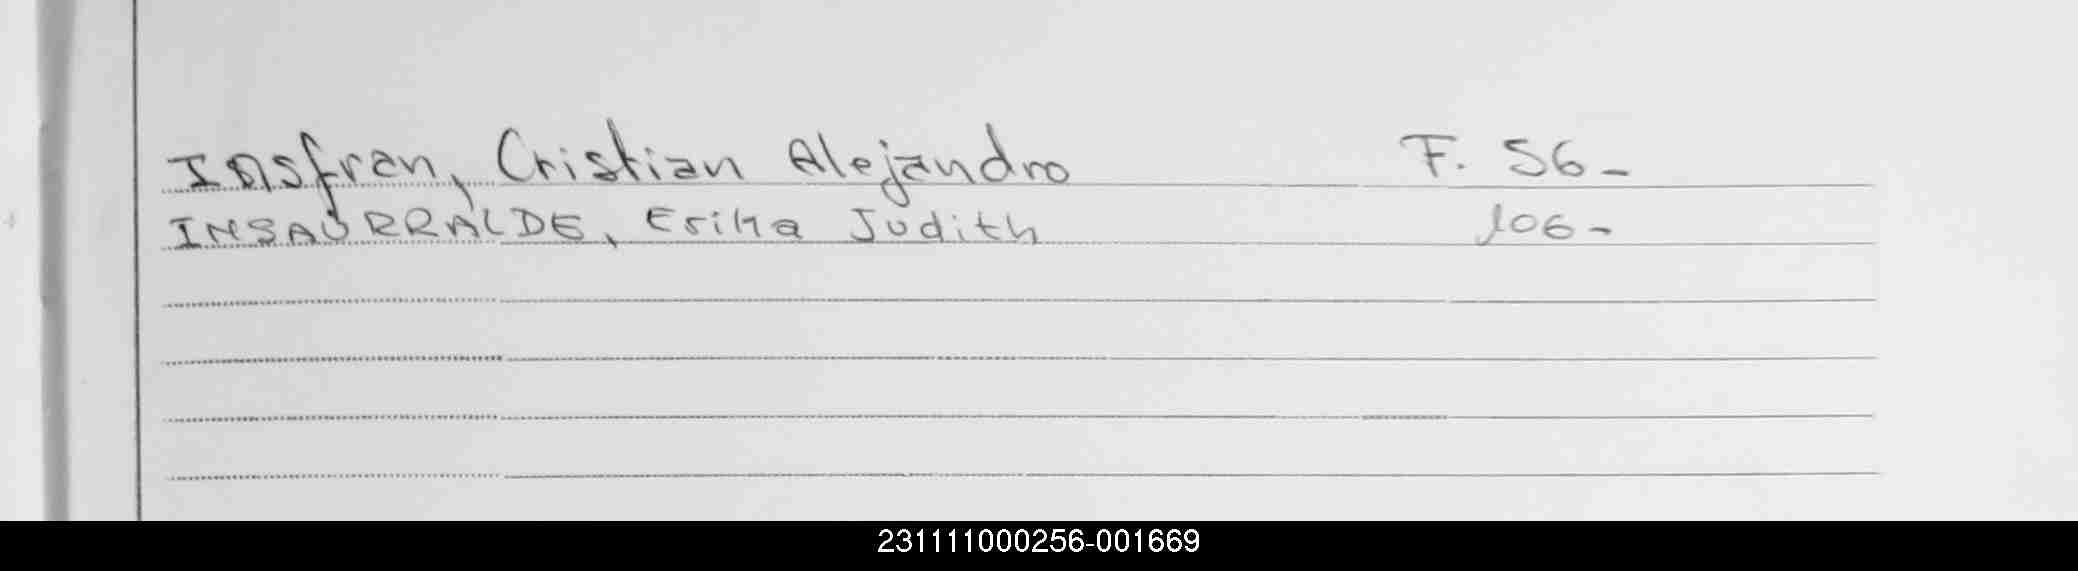 Insfran, Cristian Alejandro F. 56-
INSAURRALDE, Erika Judith 106-
231111000256-001669